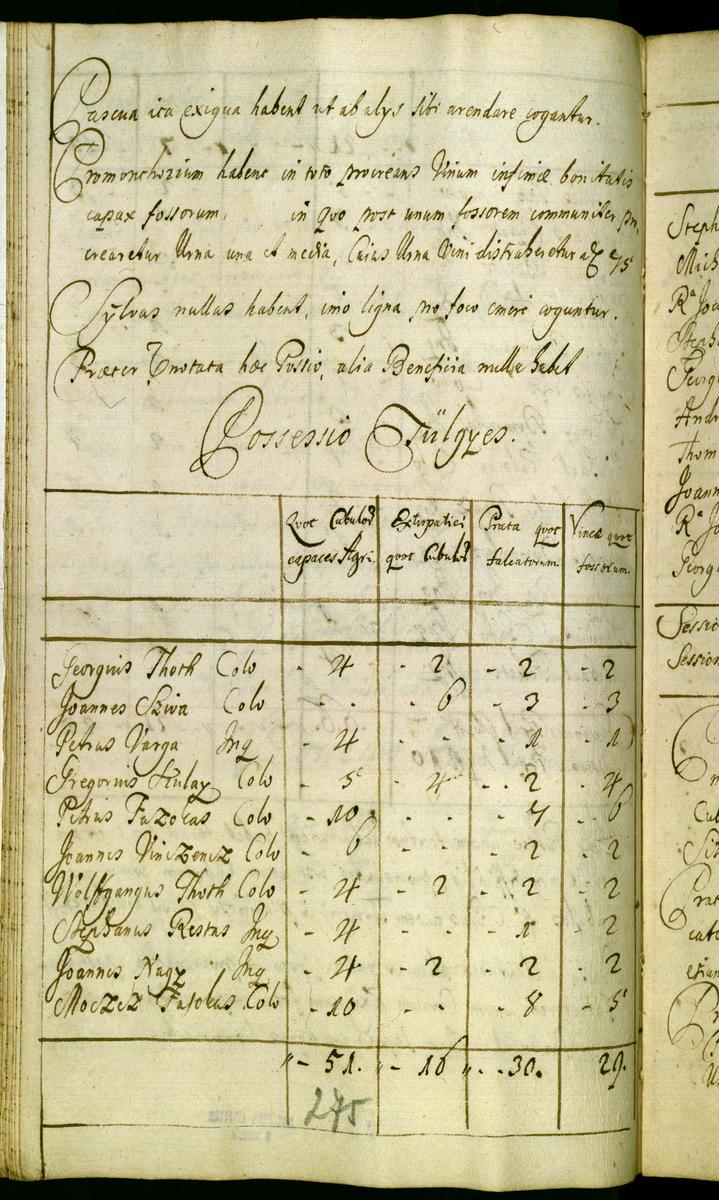 Pascua ita exigua habent ut ab alys sibi arendare cogantur.
Promonthorium habent in toto procreans Vinum infimæ bonitatis
capax fossorum, in quo post unum fossorem communiter pro
crearetur Urna una et media, Cuius Urna Vini distraheretur a 75
Sylvas nullas habent, imo ligna pro foco emere coguntur.
Præter Notata hæc Possio, alia Beneficia nulla habet
Possessio Tülgyes.
Quot Cubulor Extirpatici Prata quot Vineæ quot
capaces Agri. quot Cubulor falcatorum. fossorum.
Georgius Thoth Colo - 4 - 2 - 2 - 2
Joannes Sziva Colo - - 6 - 3 - 3
Petrus Varga Inq - 4 - - - 1 - 1
Gregorius Colo - 5 - 4 - - 2 - 4
Petrus Fazokas Colo - 10 - - - 7 - - 6
Joannes Vinczencz Colo - 6 - - - 2 - 2
Wolffgangus Thoth Colo - 4 - 2 - 2 - 2
Stephanus Restas Inq - 4 - - - 1 - 2
Joannes Nagy Inq - 4 - 2 - 2 - 2
Colo - 10 - - - 8 - 5
- 51. - 16 - - 30. 29.
245
Steph
Mich
Ra Joa
Steph
Georg
Andr
Thom
Joann
Ra Jo
Georg
Sessio
Session
Cub
Sit
Prat
cato
etiam